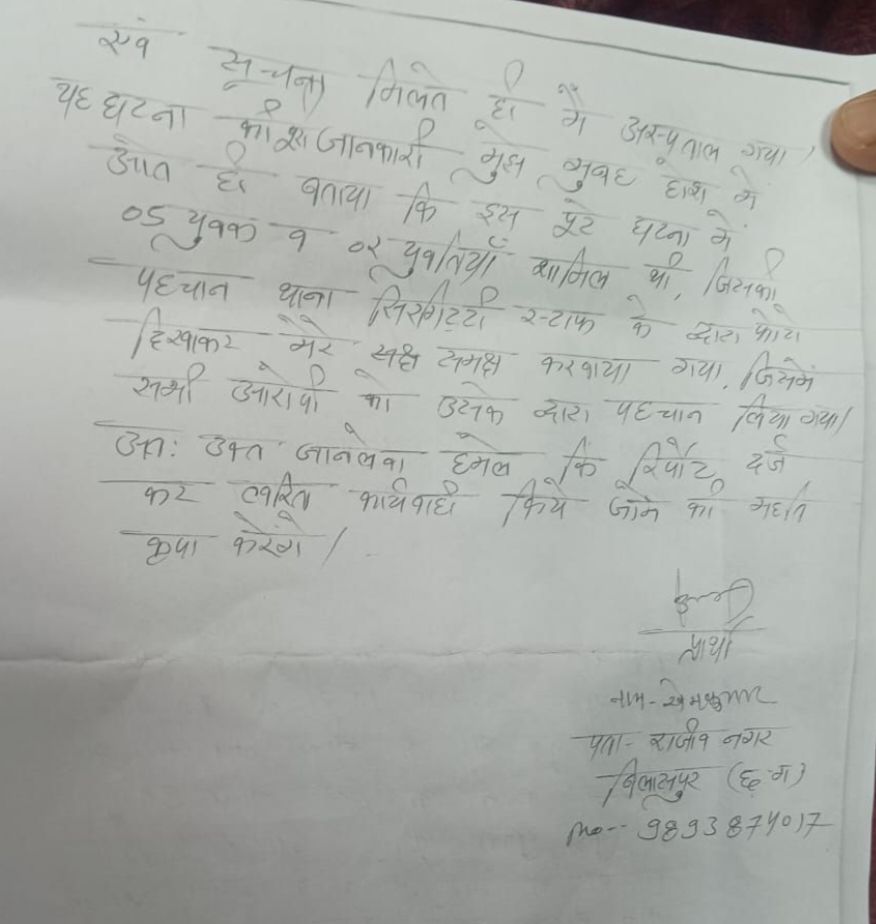 एवं सूचना मिलते ही मैं अस्पताल गया।
यह घटना की जानकारी मुझे सुबह होश में
आते ही बताया कि इस पूरे घटना में
05 युवक व 02 युवतियाँ शामिल थी, जिसकी
पहचान थाना सिरगिट्टी स्टाफ के द्वारा फोटो
दिखाकर मेरे समक्ष करवाया गया, जिसमें
सभी आरोपी को उसके द्वारा पहचान लिया गया।
अतः उक्त जानलेवा हमले कि रिपोर्ट दर्ज
कर त्वरित कार्यवाही किये जाने की महति
कृपा करेंगे।
प्रार्थी
नाम-
पता- राजीव नगर
बिलासपुर (छ.ग)
mo-- 9893874017